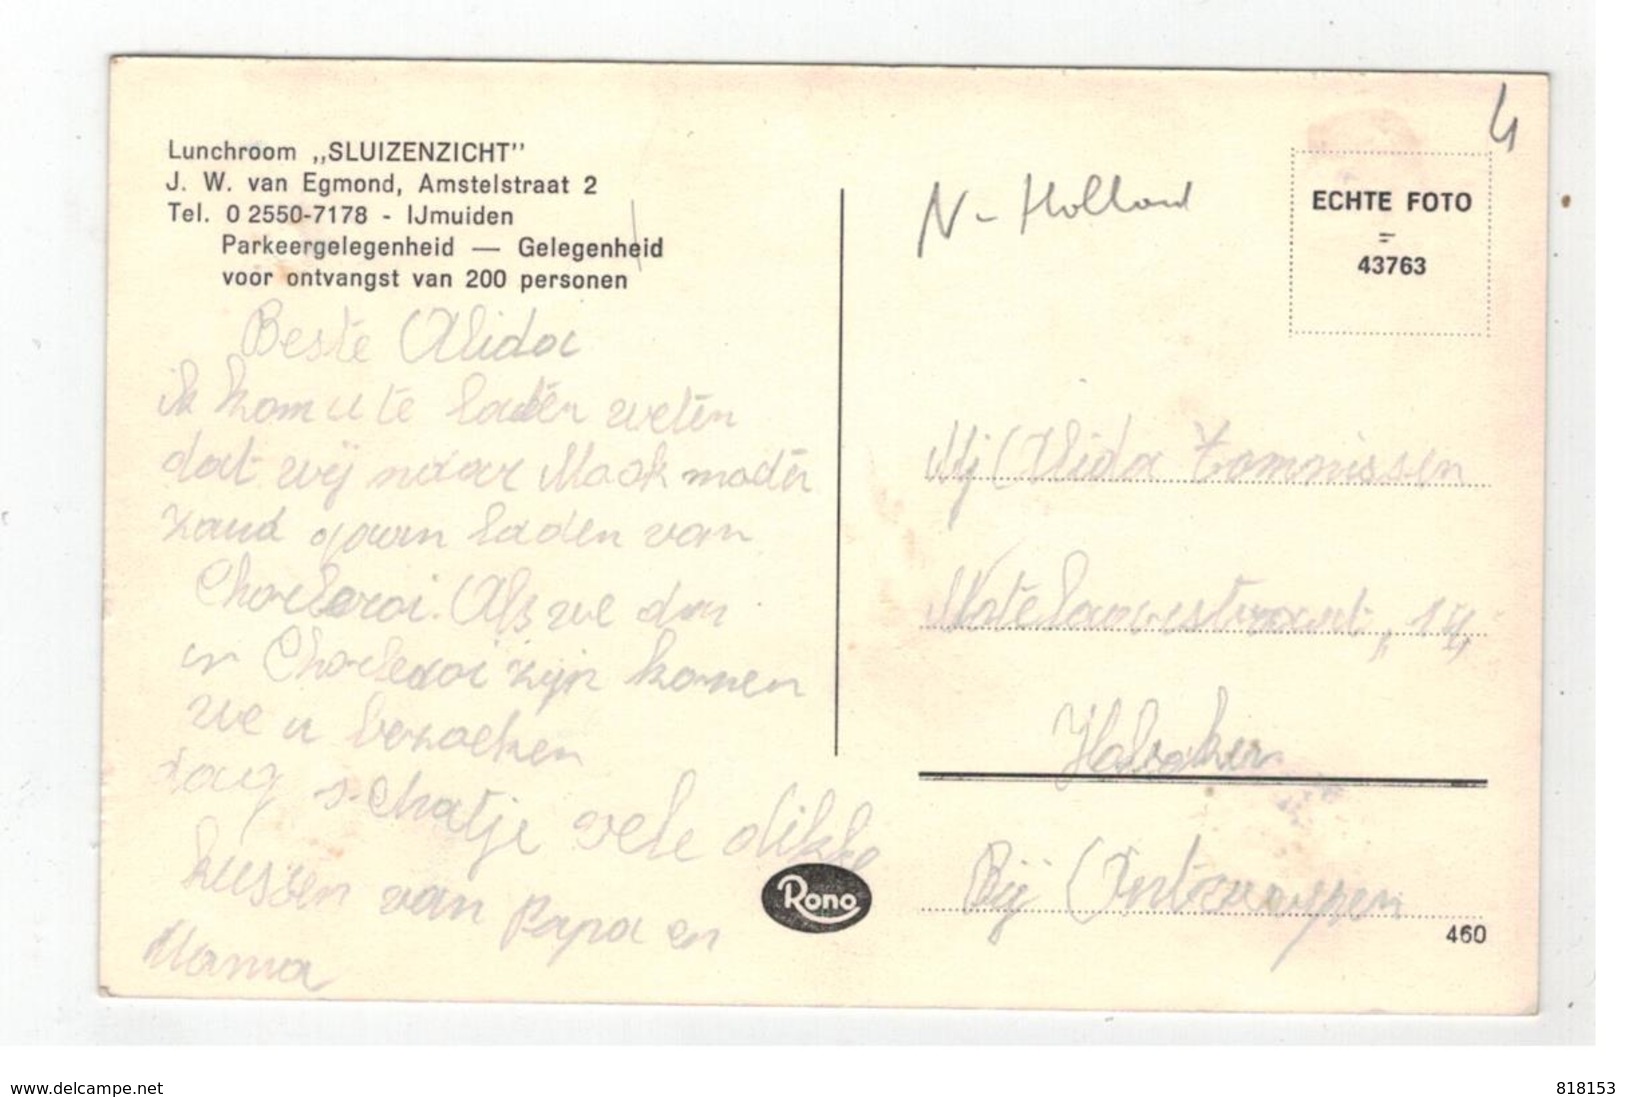 Lunchroom „SLUIZENZICHT”
J. W. van Egmond, Amstelstraat 2
Tel. 0 2550-7178 - IJmuiden
Parkeergelegenheid — Gelegenheid
voor ontvangst van 200 personen
Beste Alida
ik kom u te laten weten
dat wij naar
gaan laden van
Als we dan
in zijn komen
we u bezoeken
daag schatje vele dikke
kussen van Papa en
Mama
Rono
N - Holland
4
ECHTE FOTO
=
43763
Mj Alida Commissen
Notelaarestraat, 14,
Bij Antwerppen
460
www.delcampe.net
818153